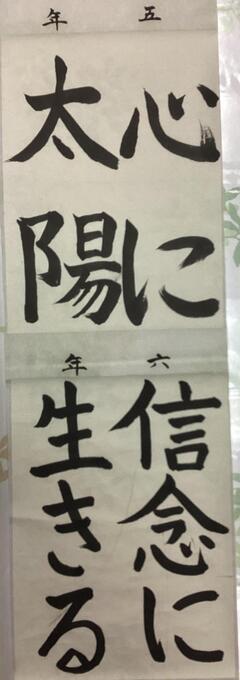 五年
心に
太陽
六年
信念に
生きる